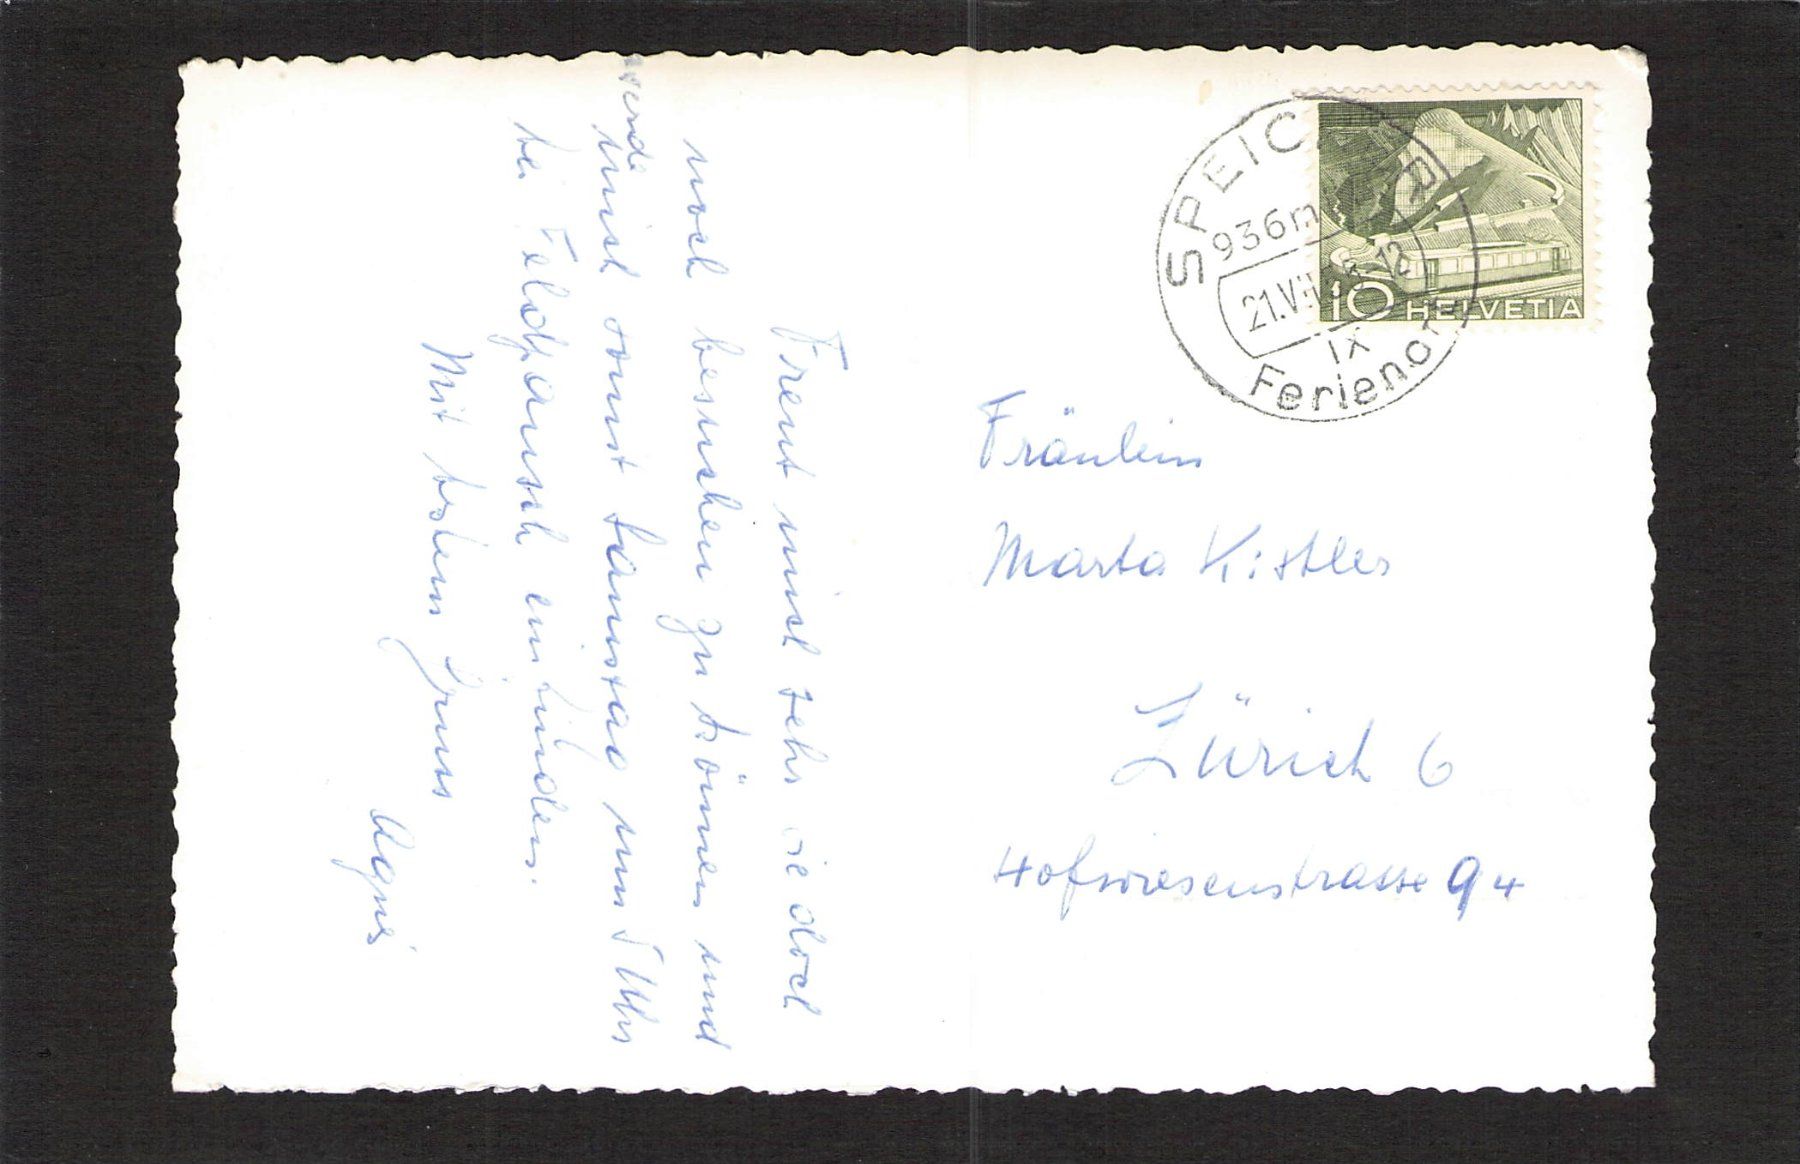 Freut mich sehr sie doch
noch besuchen zu können und
werde
mich somit Samstag um 5 Uhr
bei Feldpausch einfinden.
Mit bestem Gruss
Agnes
SPEICHER
936m
21.VII
12
IX
Ferienort
10 HELVETIA
Fräulein
Marta Kistler
Zürich 6
Hofwiesenstrasse 94